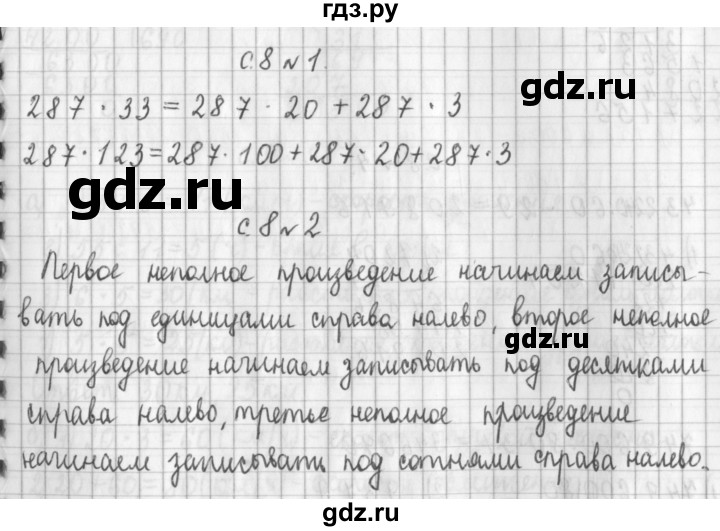 гдз.ру
с.8 № 1.
gdz.ru
287 · 33 = 287 · 20 + 287 · 3
287 · 123 = 287 · 100 + 287 · 20 + 287 · 3
gdz.ru
с.8 № 2
Первое неполное произведение начинаем записы-
вать под единицами справа налево, второе неполное
gdz.ru
произведение начинаем записывать под десятками
справа налево, третье неполное произведение
начинаем записывать под сотнями справа налево.
gdz.ru